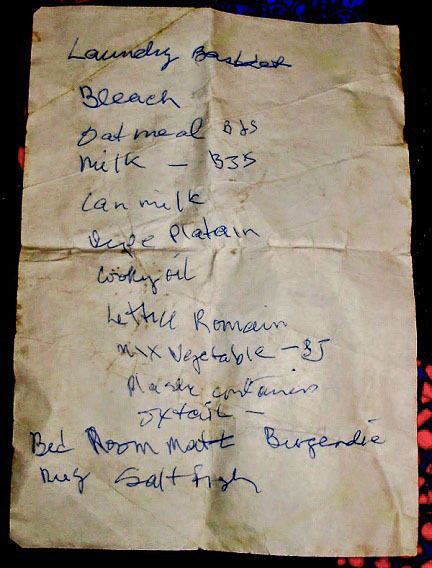 Laundry Basket
Bleach
Oatmeal BJS
Milk – BJS
Can milk
Ripe Platain
Cooky oil
Lettuce Romain
Mix Vegetable – BJ
Plastic containers
Oxtail –
Bed Room Matt Burgendie
Rug Saltfish